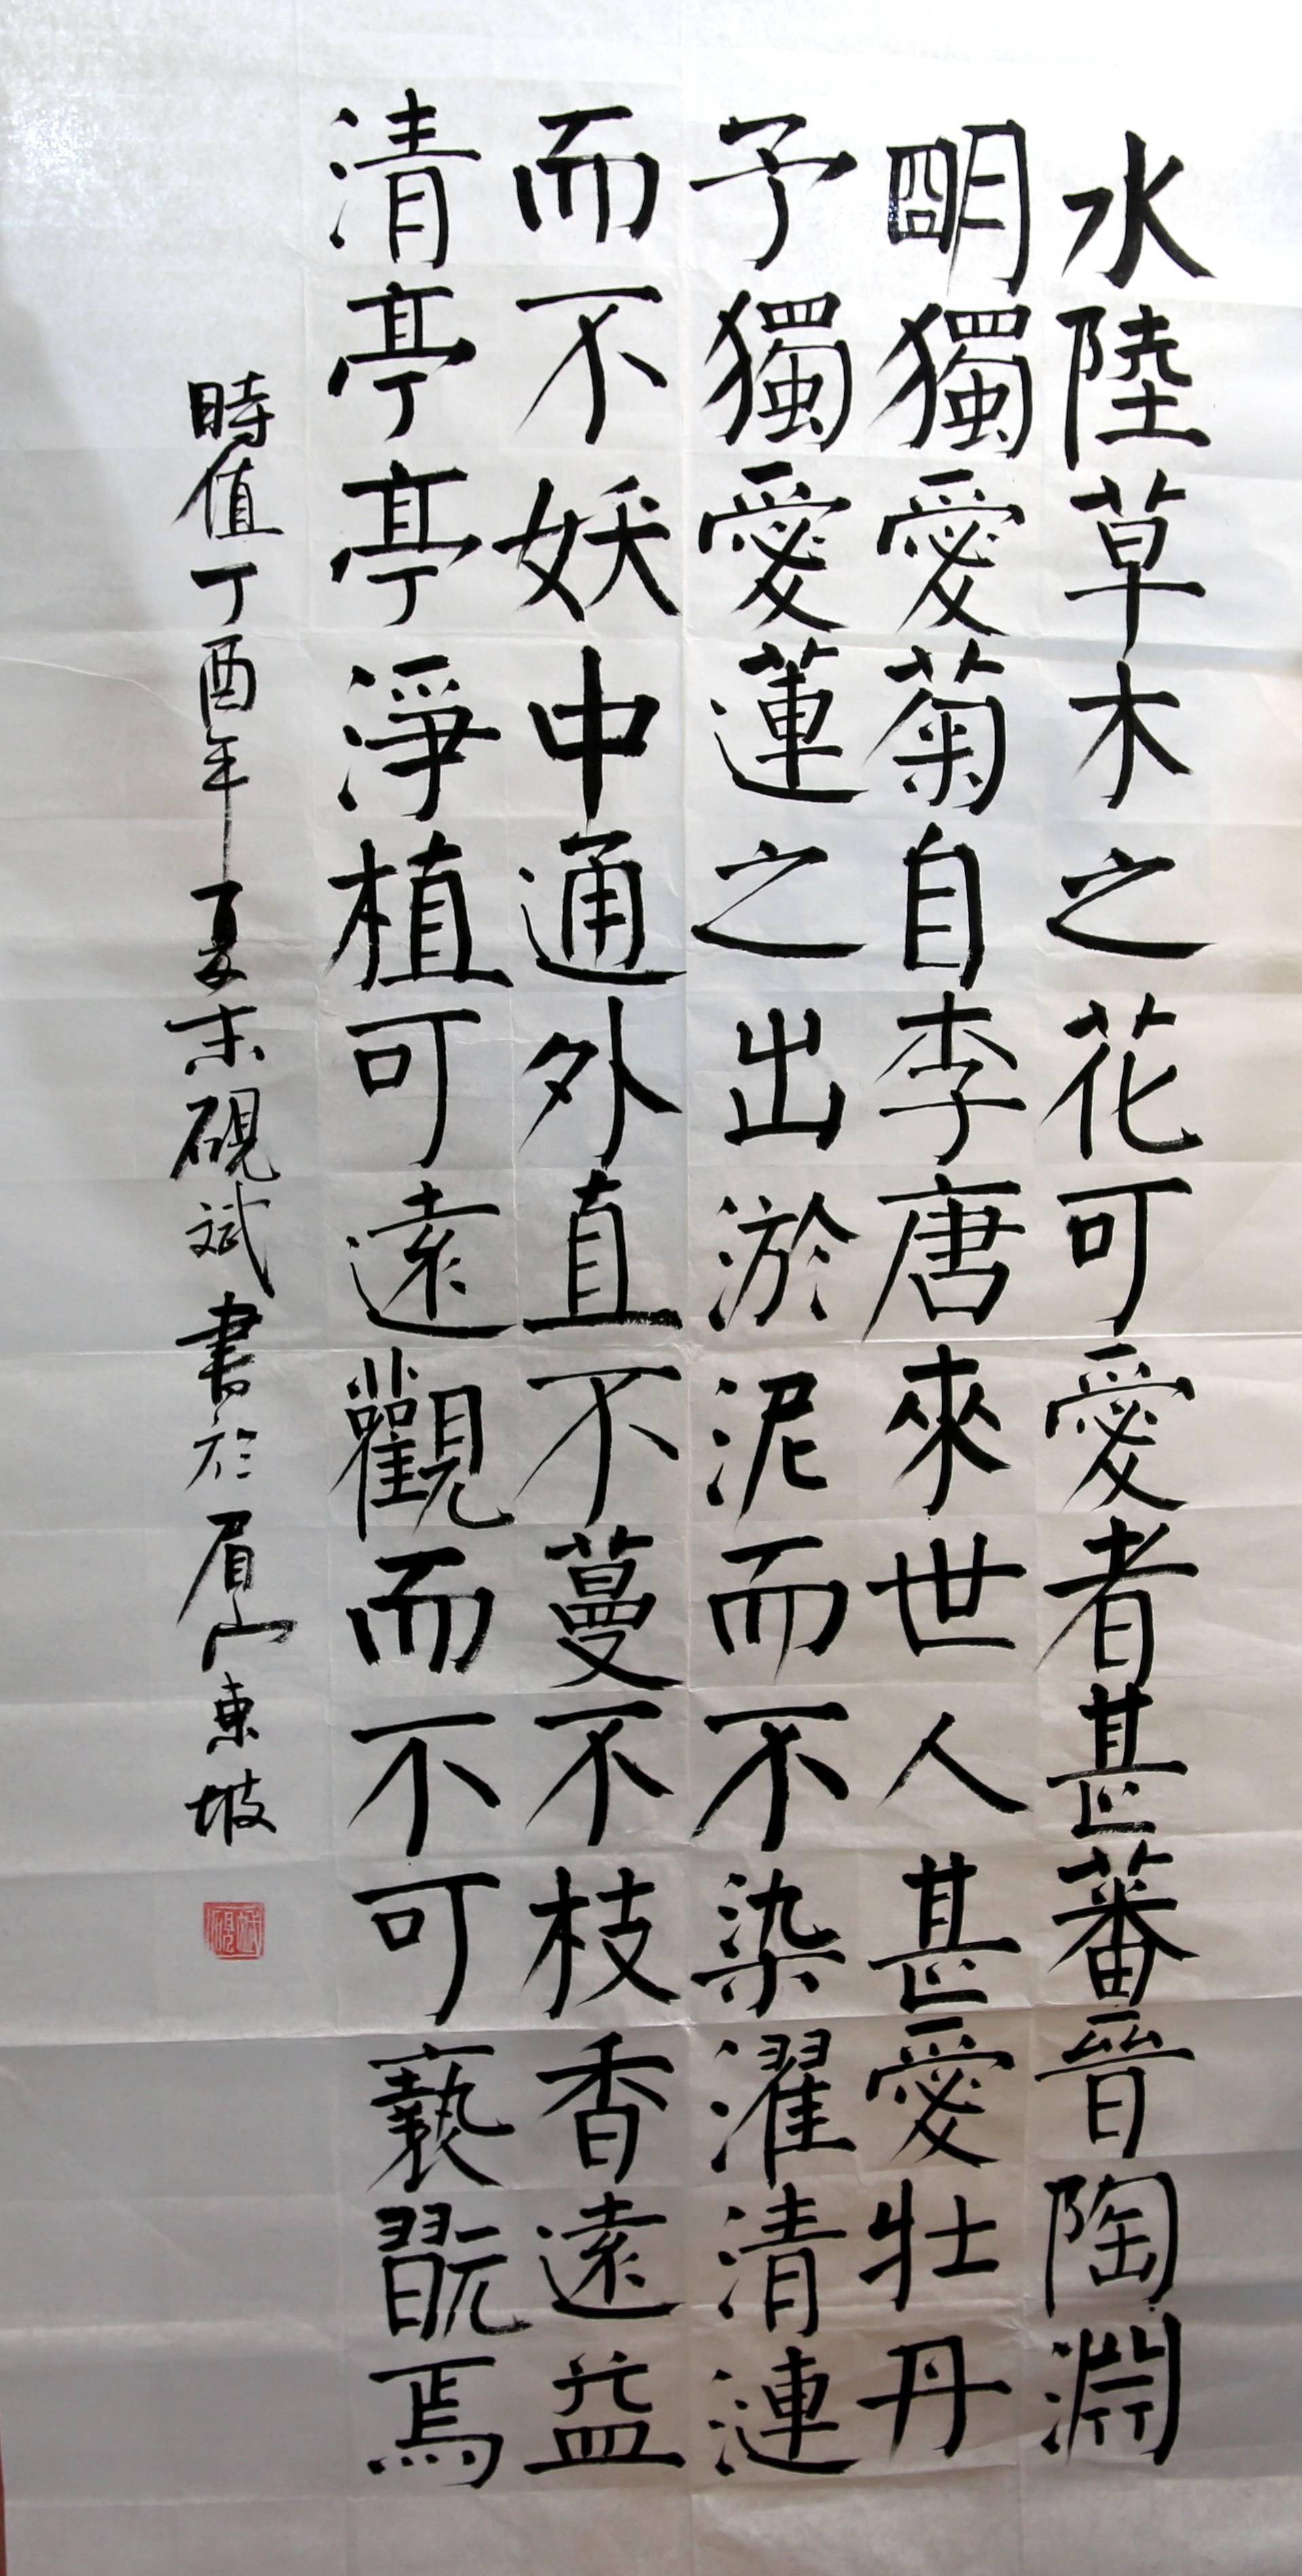 水陸草木之花可愛者甚蕃晉陶淵
明獨愛菊自李唐來世人甚愛牡丹
予獨愛蓮之出淤泥而不染濯清漣
而不妖中通外直不蔓不枝香遠益
清亭亭淨植可遠觀而不可褻翫焉
時值丁酉年夏末硯斌書於眉山東坡